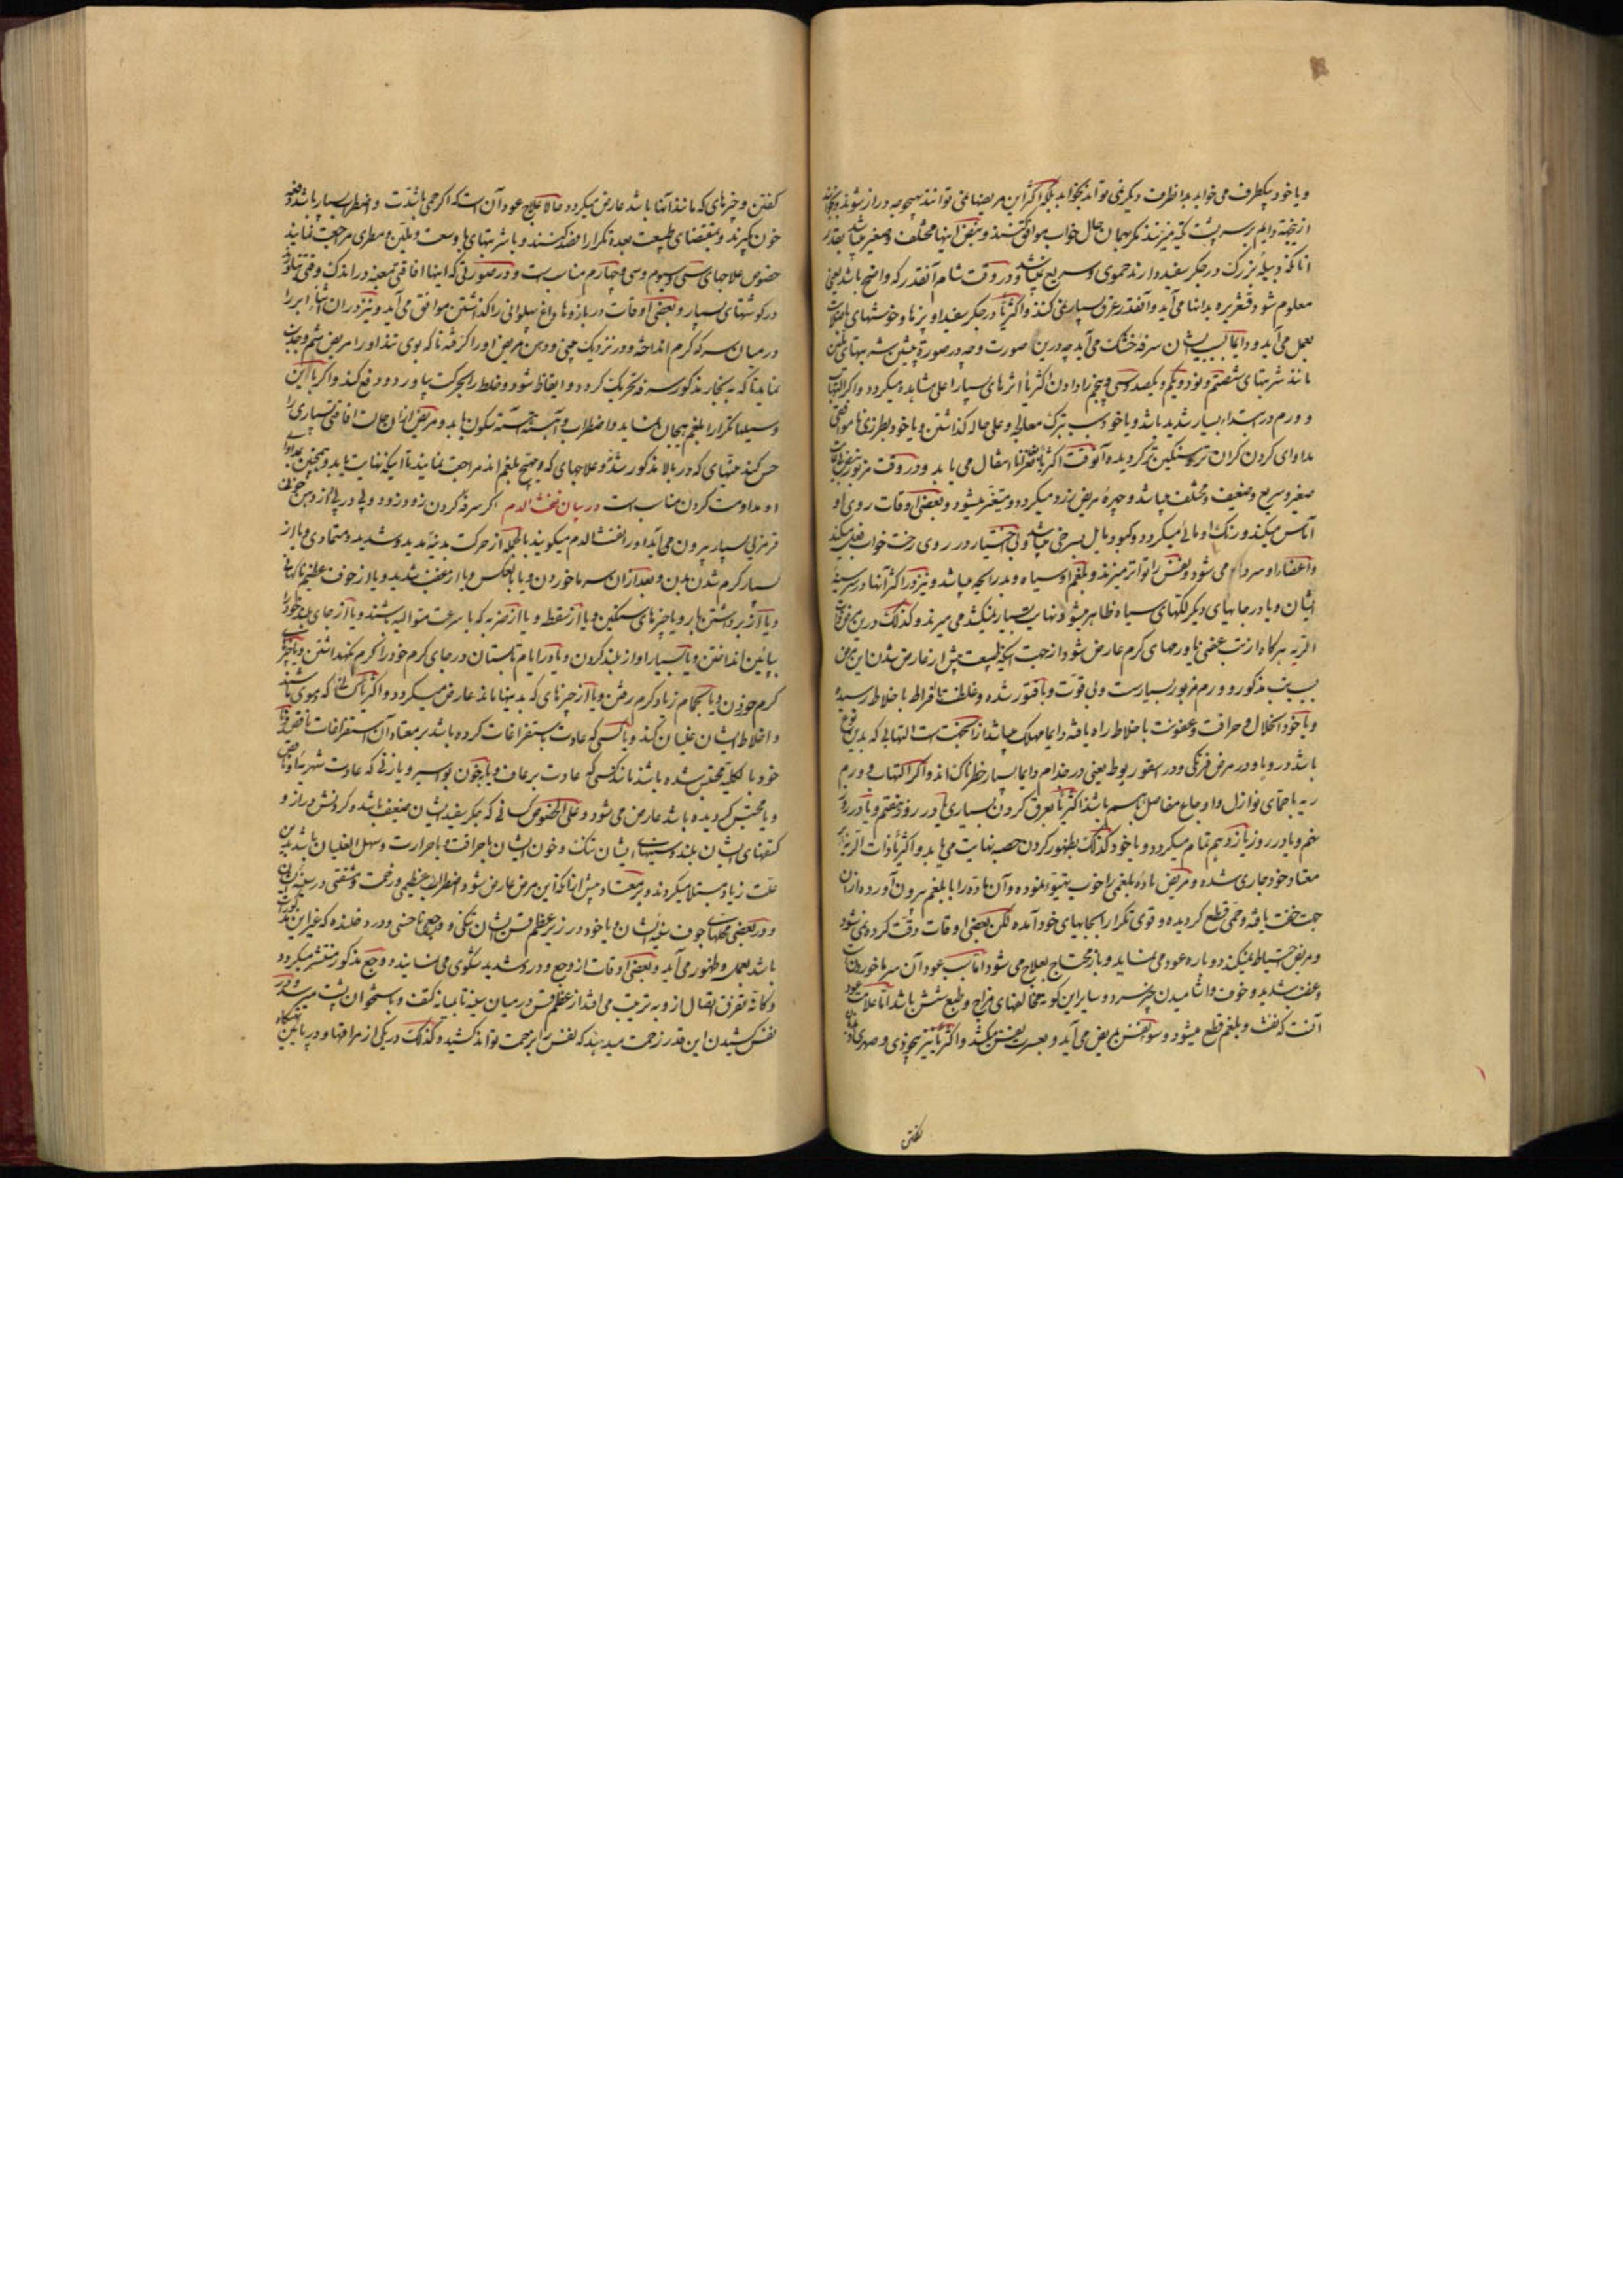 و یا خود بیکطرف می خوابد بدانطرف دیگر نمی تواند بخوابد بلکه اکثر این مریضها نمی توانند بهیچوجه دراز شوند
ازینجهة دایم بر سر پشت تکیه میزنند مگر بهمان حال خواب موافق کنند و نبض اینها مختلف و صغیر میباشد بقدر
انانکه دبیلهٔ بزرک در جگر سفید دارند حموی و سریع میباشد و در وقت شام آنقدر که واضح باشد یعنی
معلوم شود قشعریره بدانها می آید و آنقدر عرق بسیار نمی کنند و اکثریا در جگر سفید او
بعمل می آید و دایما بسبب ایشان سرفهٔ خشک می آید چه درین صورت و چه در صورة پیشین شربتهای ملین
مانند شربتهای شصتم و نود و یکم و یکصد و سی و پنجم را دادن اکثریا اثرهای بسیار اعلی مشاهده میگردد و اگر التهاب
و ورم در ابتداء بسیار شدید باشد و یا خود بسبب ترک معالجه و علی حاله گذاشتن و یا خود بطرزی ناموافق
مداوای کردن گران تر و سنگین تر گردیده آنوقت اکثریا انتقال می یابد و در وقت مزبور نبض
صغیر و سریع و ضعیف و مختلف میباشد و چهرهٔ مریض زرد میگردد و متغیر میشود و بعضی اوقات روی او
آماس میکند و رنک او مائی میگردد و کبود مایل بسرخی میباشد و بی اختیار در روی رخت خواب
و اعضا را و سردا می شود و نفس را تواتر میزند و بلغم او سیاه و بد رایحه میباشد و نیز در اکثر آنها در سر سینهٔ
ایشان و یا در جایهای دیگر لکهای سیاه ظاهر میشود و نهایت بسیار نمیکشد می میرند و کذلک درین مرض ذات
الریه هرگاه از تب عفنی یا ورمهای گرم عارض شود از جهت اینکه طبیعت پیش از عارض شدن این مرض
بسبب مذکور و ورم مزبور بسیار سست و بی قوت و با فتور شده و غلظت بافراط باخلاط رسیده
و یا خود انحلال و حرافت و عفونت باخلاط راه یافته دایما مهلک میباشد ازینجهت است التهابی که بدین نوع
باشد در وبا و در مرض فرنکی و در اسقوربوط یعنی در جذام دایما بسیار خطرناک اند و اگر التهاب و ورم
ریه با حمای نوازل و اوجاع مفاصل باهم باشد اکثریا بعرق کردن بسیاری یا در روز هفتم و یا در روز
نهم و یا در روز یازدهم تمام میگردد و یا خود کذلک بظهور کردن حصبه نهایت می یابد و اکثریا ذات الریه
معتاد خود جاری شده و مریض مادهٔ بلغمی را خوب تهیه نموده و آن ماده را با بلغم بیرون آورده ازان
جهت خفت یافته و حمی قطع گردیده و قوی تکرارا بجایهای خود آمده لکن بعضی اوقات دقت کرده نمی شود
و مریض احتیاط نمیکند دوباره عود می نماید و باز محتاج بعلاج می شود اما سبب عود آن سرما خوردن است
و عفت شدید و خوف و اشامیدن چیز سرد و سایر این گونه مخالفتهای مزاج و طبع شش باشد اما علامت عود
آنست که نفث و بلغم قطع میشود و سوء نفس بمریض می آید و بعسرت نفس میکشد و اکثریا نیز بیخودی و
گفتن
گفتن و چیزهای که مانند آنها باشد عارض میگردد حالا علاج عود آن است که اگر حمی باشدت و اضطراب بسیار باشد دفعه
خون بگیرند و بمقتضای طبیعت بعده تکرارا فصد کنند و با شربتهای با وسعت و ملین و مطری مراجعت نمایند
خصوص علاجهای سی و سیوم و سی و چهارم مناسب است و در صورتی که اینها افاقتی نبخشد در اندک وقتی
در گوشتهای بسیار و بعضی اوقات در بازوها داغ پهلوانی را گذاشتن موافق می آید و نیز در ان اثنا ابر را
در میان سرکهٔ گرم انداخته و در نزدیک بینی و دهن مریض او را گرفته تا که بوی تند او را مریض شم و جذب
نماید تا که به بخار مذکور سرفه تحریک گردد و ایقاظ شود و خلط را بحرکت بیاورد و دفع کند و اگر با این
وسیله تکرارا بلغم هیجان نماید و اضطراب آهسته آهسته سکون یابد و مریض ازان حالت افاقتی بسیاری را
حس کند بمیتهای که در بالا مذکور شده و علاجهای که منضج بلغم اند مراجعت نمایند تا اینکه نهایت یابد و همچنین بمداوای
او مداومت کردن مناسب است در بیان نفث الدم اگر سرفه کردن زود زود و پی در پی از دهن خونی
قرمزلی بسیار بیرون می آید او را نفث الدم میگویند بالجمله از حرکت بدنیهٔ مدید و شدید و متمادی و یا از
بسیار گرم شدن بدن و بعد از ان سرما خوردن و یا بالعکس و یا از عفت شدید و یا از خوف عظیم ناگهانی
و یا از برداشتن بار و یا چیزهای سنگین و یا از سقطه و یا از ضربه که با سرعت متوالیه باشند و یا از جای بلند خود را
بپائین انداختن و یا بسیار اواز بلند کردن و یا در ایام تابستان در جای گرم خود را گرم نگهداشتن و یا چیز
گرم خوردن و یا بحمام زیاد گرم رفتن و یا از چیزهای که بدینها ماند عارض میگردد و اکثریا کسانی که دموی باشند
و اخلاط ایشان غلیان کند و یا کسی که عادت باستفراغات کرده باشد بر معتاد آن استفراغات ناقص
خود بالکلیه محتبس شده باشد مانند کسی که عادت برعاف و یا بخون بواسیر و یا زنی که عادت شهریهٔ او ناقص
و یا محتبس گردیده باشد عارض می شود و علی الخصوص کسانی که جگر سفید ایشان ضعیف باشد و گردنش دراز و
کتفهای ایشان بلند و سینهای ایشان تنک و خون ایشان باحرافت و باحرارت و سهل الغلیان باشد بدین
علت زیاد مبتلا میگردند و بر معتاد پیش از انکه این مرض عارض شود اضطراب عظیمی و زحمت و مشقتی در سینهٔ
و در بعضی محلهای جوف سینهٔ ایشان و یا خود در زیر عظم قس ایشان تنکی و وجع ناخسی و درد خلنده که غیر این
باشد بعمل و ظهور می آید و بعضی اوقات از وجع و درد شدید شکوی می نمایند و وجع مذکور منتشر میگردد
و کانه تفرق اتصال ازو به ترتیب می افتد از عظم قس در میان سینه تا بمیانه کتف و باستخوان پشت میرسد و در
نفس کشیدن این قدر زحمت میدهد که نفس را بزحمت تواند کشید و کذلک در یکی از مراقها و در پائین